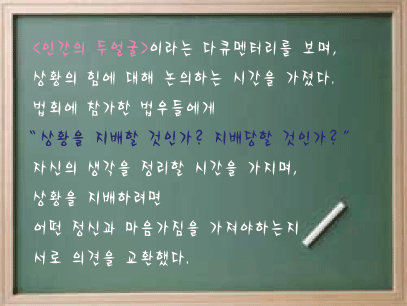 <인간의 두얼굴>이라는 다큐멘터리를 보며,
상황의 힘에 대해 논의하는 시간을 가졌다.
법회에 참가한 법우들에게
"상황을 지배할 것인가? 지배당할 것인가?"
자신의 생각을 정리할 시간을 가지며,
상황을 지배하려면
어떤 정신과 마음가짐을 가져야하는지
서로 의견을 교환했다.